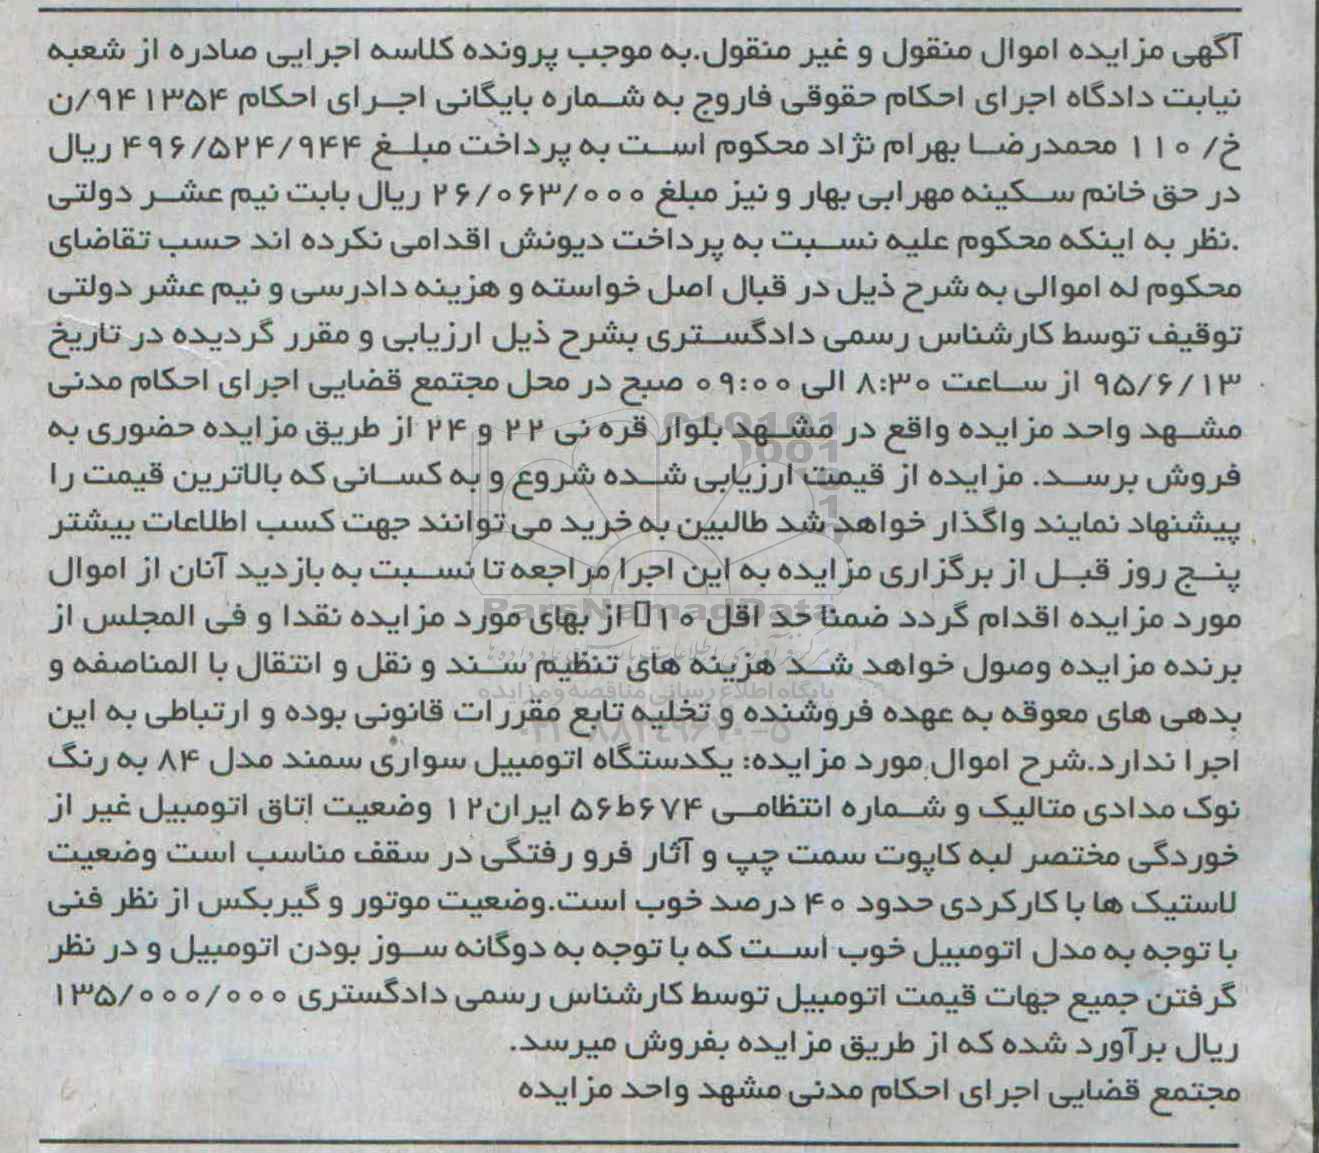 آگهی مزایده اموال منقول و غیر منقول.به موجب پرونده کلاسه اجرایی صادره از شعبه
نیابت دادگاه اجرای احکام حقوقی فاروج به شماره بایگانی اجرای احکام ۹۴۱۳۵۴/ن
خ/ ۱۱۰ محمدرضا بهرام نژاد محکوم است به پرداخت مبلغ ۴۹۶/۵۲۴/۹۴۴ ریال
در حق خانم سکینه مهرابی بهار و نیز مبلغ ۲۶/۰۶۳/۰۰۰ ریال بابت نیم عشر دولتی
.نظر به اینکه محکوم علیه نسبت به پرداخت دیونش اقدامی نکرده اند حسب تقاضای
محکوم له اموالی به شرح ذیل در قبال اصل خواسته و هزینه دادرسی و نیم عشر دولتی
توقیف توسط کارشناس رسمی دادگستری بشرح ذیل ارزیابی و مقرر گردیده در تاریخ
۹۵/۶/۱۳ از ساعت ۸:۳۰ الی ۰۹:۰۰ صبح در محل مجتمع قضایی اجرای احکام مدنی
مشهد واحد مزایده واقع در مشهد بلوار قره نی ۲۲ و ۲۴ از طریق مزایده حضوری به
فروش برسد. مزایده از قیمت ارزیابی شده شروع و به کسانی که بالاترین قیمت را
پیشنهاد نمایند واگذار خواهد شد طالبین به خرید می توانند جهت کسب اطلاعات بیشتر
پنج روز قبل از برگزاری مزایده به این اجرا مراجعه تا نسبت به بازدید آنان از اموال
مورد مزایده اقدام گردد ضمنا حد اقل ۱۰▯ از بهای مورد مزایده نقدا و فی المجلس از
برنده مزایده وصول خواهد شد هزینه های تنظیم سند و نقل و انتقال با المناصفه و
بدهی های معوقه به عهده فروشنده و تخلیه تابع مقررات قانونی بوده و ارتباطی به این
اجرا ندارد.شرح اموال مورد مزایده: یکدستگاه اتومبیل سواری سمند مدل ۸۴ به رنگ
نوک مدادی متالیک و شماره انتظامی ۶۷۴ط۵۶ ایران۱۲ وضعیت اتاق اتومبیل غیر از
خوردگی مختصر لبه کاپوت سمت چپ و آثار فرو رفتگی در سقف مناسب است وضعیت
لاستیک ها با کارکردی حدود ۴۰ درصد خوب است.وضعیت موتور و گیربکس از نظر فنی
با توجه به مدل اتومبیل خوب است که با توجه به دوگانه سوز بودن اتومبیل و در نظر
گرفتن جمیع جهات قیمت اتومبیل توسط کارشناس رسمی دادگستری ۱۳۵/۰۰۰/۰۰۰
ریال برآورد شده که از طریق مزایده بفروش میرسد.
مجتمع قضایی اجرای احکام مدنی مشهد واحد مزایده
ParsNamadData
پایگاه اطلاع رسانی مناقصه و مزایده
۰۲۱-۸۸۳۴۹۶۷۰-۵